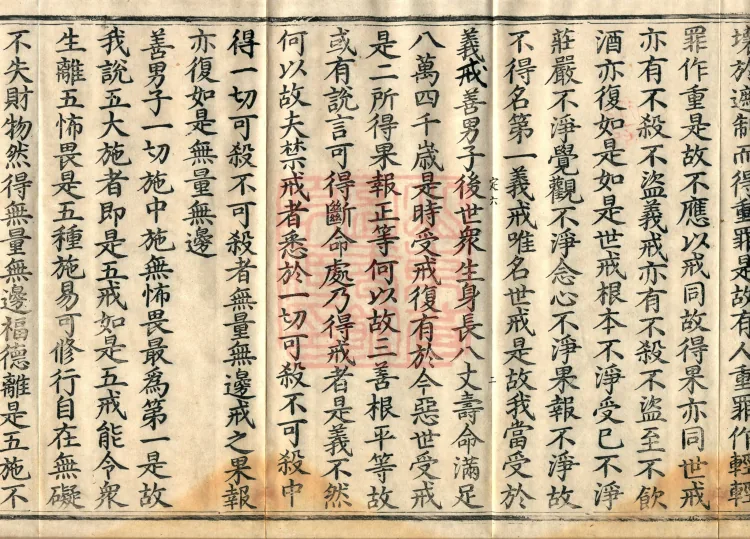 境於遮制而得重罪是故有人重罪作輕輕
罪作重是故不應以戒同故得果亦同世戒
亦有不殺不盜義戒亦有不殺不盜至不飲
酒亦復如是如是世戒根本不淨受已不淨
莊嚴不淨覺觀不淨念心不淨果報不淨故
不得名第一義戒唯名世戒是故我當受於
定六 二
義戒善男子後世衆生身長八丈壽命滿足
八萬四千歲是時受戒復有於今惡世受戒
是二所得果報正等何以故三善根平等故
或有說言可得斷命處乃得戒者是義不然
何以故夫禁戒者悉於一切可殺不可殺中
得一切可殺不可殺者無量無邊戒之果報
亦復如是無量無邊
善男子一切施中施無怖畏最爲第一是故
我說五大施者即是五戒如是五戒能令衆
生離五怖畏是五種施易可修行自在無礙
不失財物然得無量無邊福德離是五施不